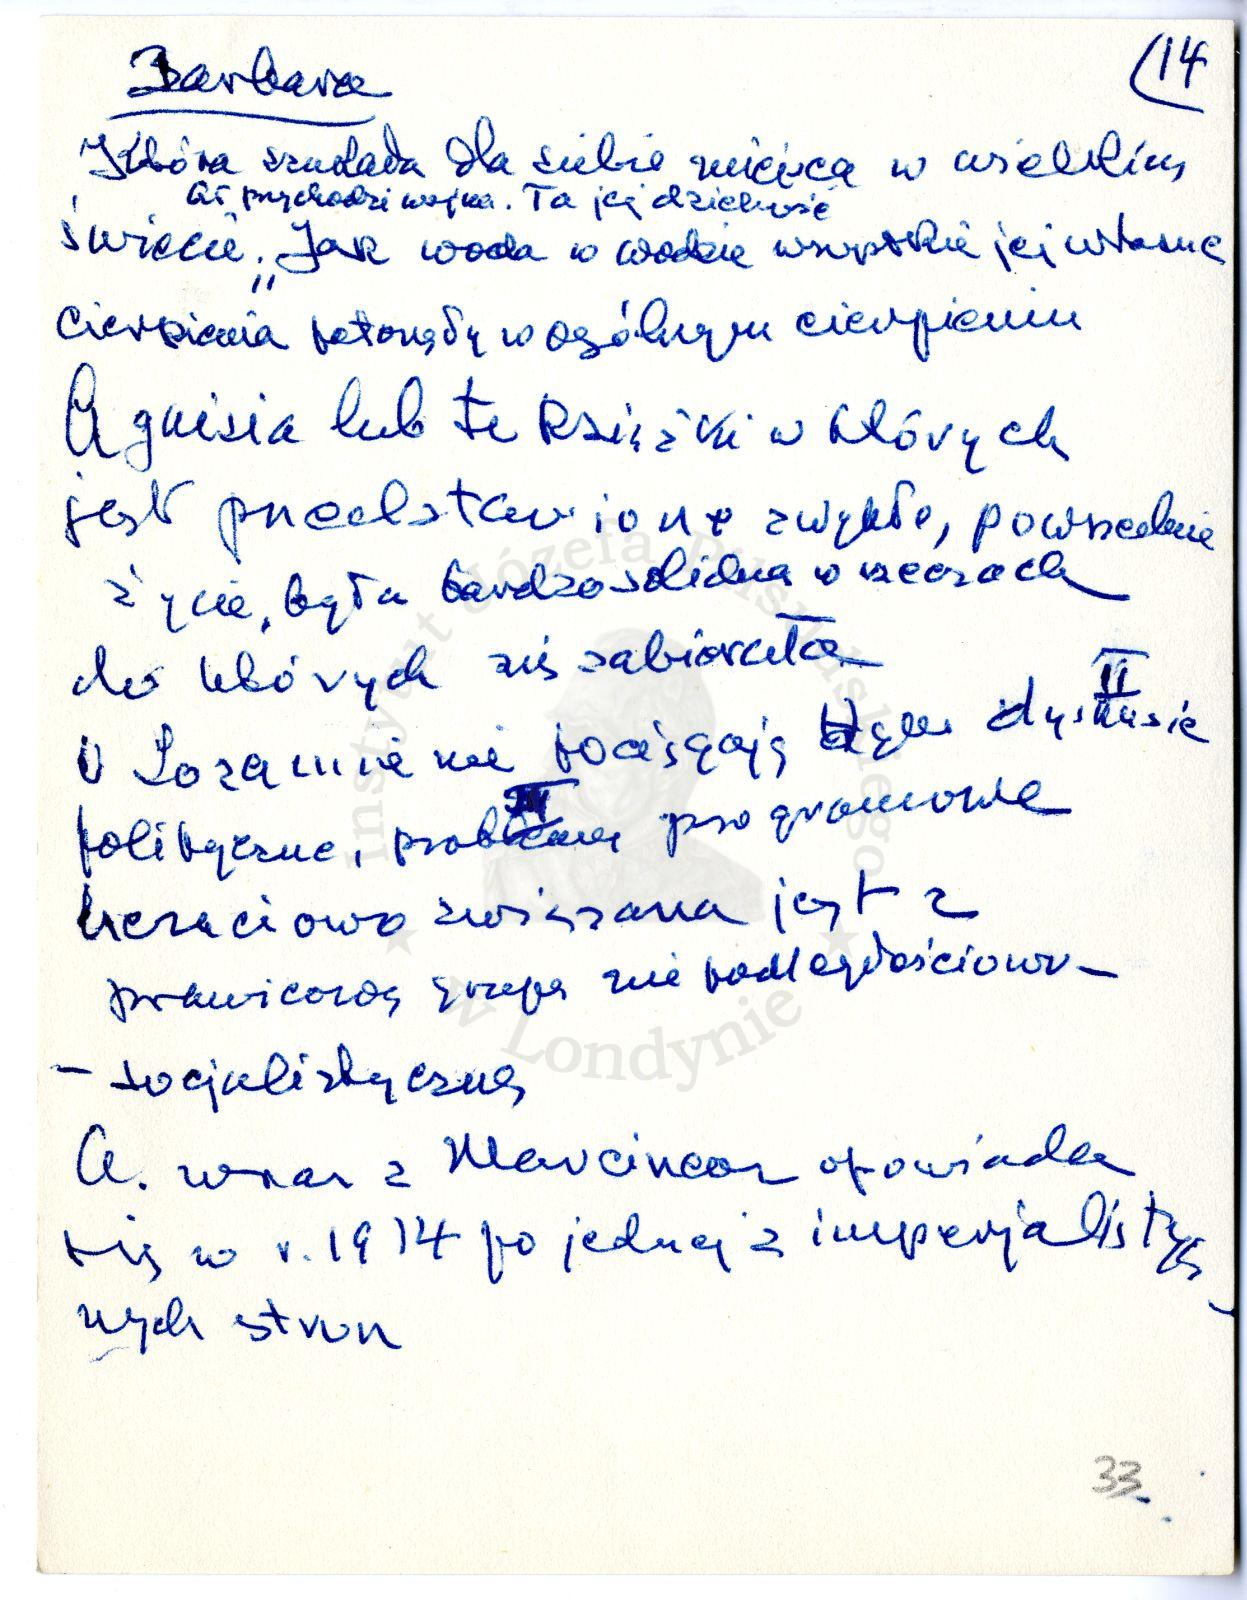 Barbara
14
Która szukała dla siebie miejsca w wielkim
aż przychodzi wojna. Ta jej dzielność
świecie. „Jak woda w wodzie wszystkie jej własne
cierpienia potonęły w ogólnym cierpieniu
Agnisia lub te książki w których
jest przedstawione zwykłe, powszednie
życie, była bardzo solidna w rzeczach
do których się zabierała
W Lozannie nie pociągają dyskusje
II
polityczne, problemy programowe
III
uczuciowo związana jest z
prawicową grupą niepodległościowo-
- socjalistyczną
A. wraz z Marcinem opowiada
się w r. 1914 po jednej z imperjalistycz-
nych stron
33
Instytut Józefa Piłsudskiego
w Londynie